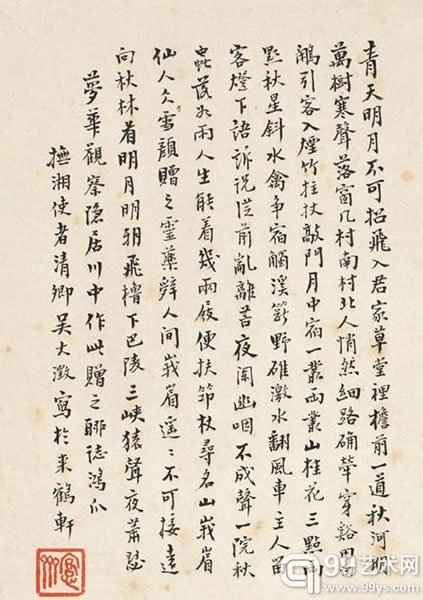 青天明月不可招飛入君家草堂裡檐前一道秋河明
萬樹寒聲落窗几村南村北人悄然細路确犖穿谿
引客入煙竹拄杖敲門月中宿一叢兩叢山桂花三點兩
點秋星斜水禽爭宿觸溪籪野碓激水翻風車主人留
客燈下語訴說從前亂離苦夜闌幽咽不成聲一院秋
蟲落如雨人生能着幾兩屐便扶筇杖尋名山峩眉
仙人雪顏贈之靈藥辭人間峩眉遙〻不可接遠
向秋林看明月明朝飛櫓下巴陵三峽猿聲夜蕭瑟
夢華觀察隱居川中作此贈之聊誌鴻爪
撫湘使者清卿吳大澂寫於來鶴軒
99艺术网
www.99ys.com